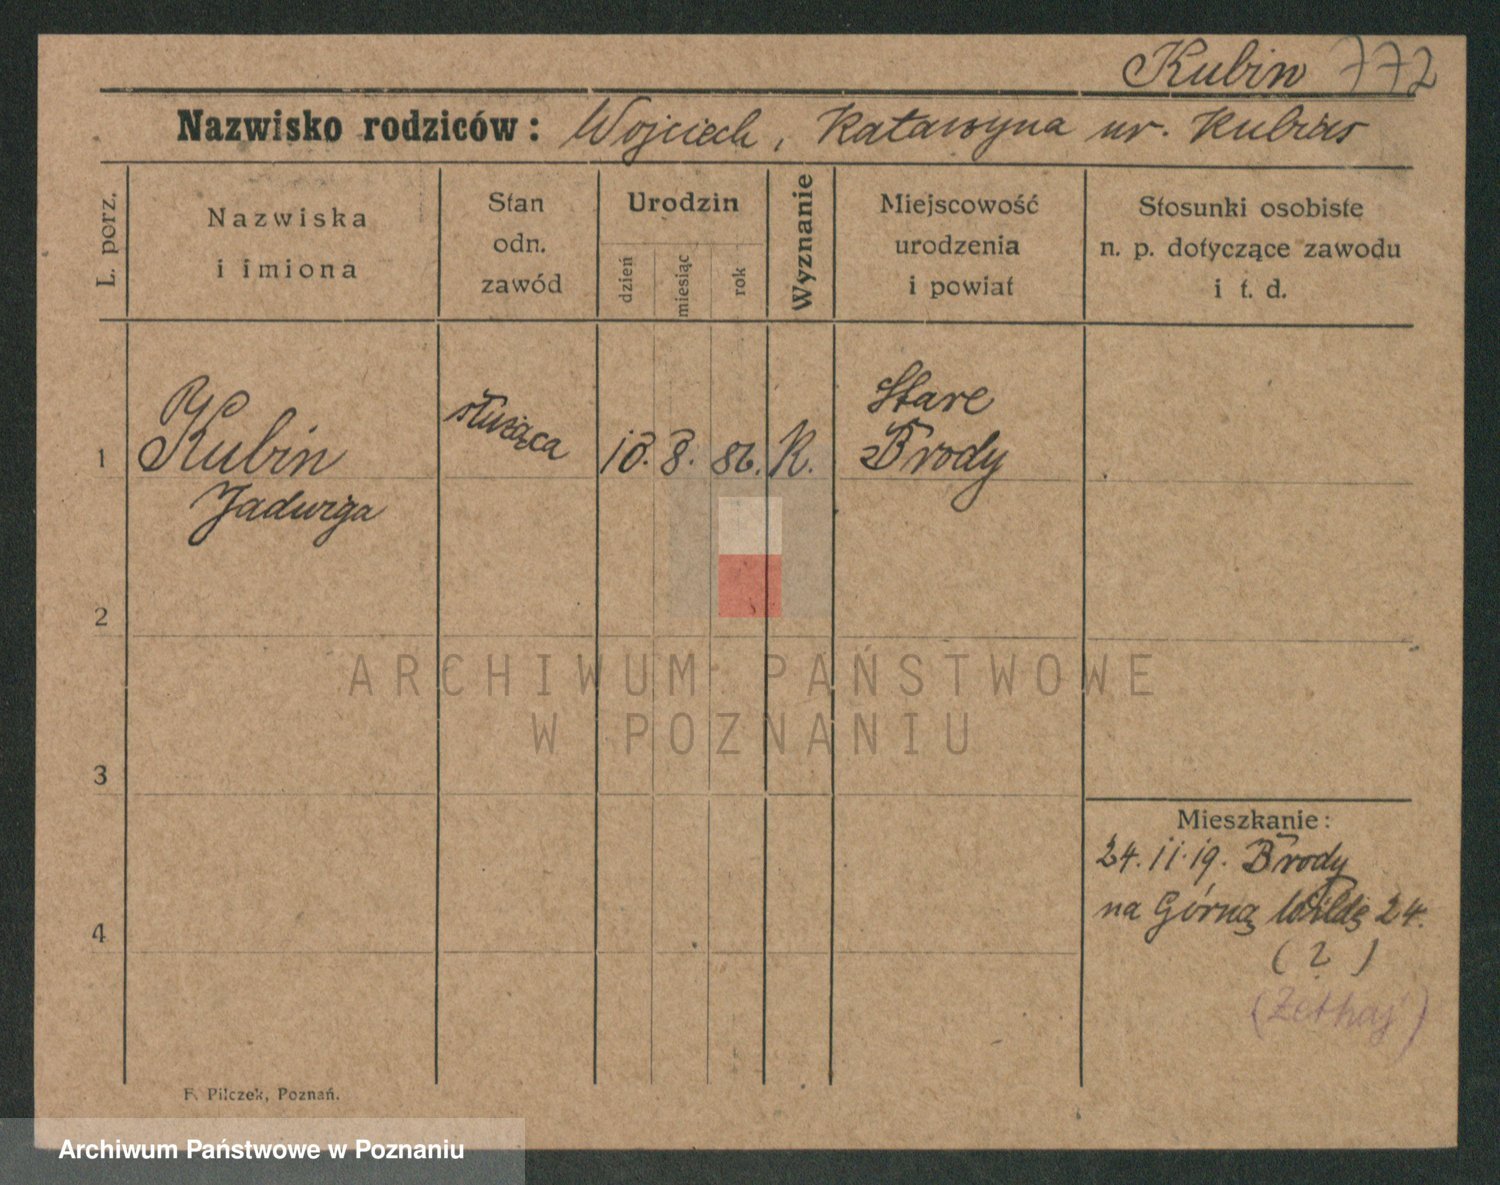 Kubin 772
Nazwisko rodziców: Wojciech, Katarzyna ur. Kubias
L. porz.
Nazwiska
i imiona
Stan
odn.
zawód
Urodzin
dzień
miesiąc
rok
Wyznanie
Miejscowość
urodzenia
i powiat
Stosunki osobiste
n. p. dotyczące zawodu
i t. d.
1
Kubin
Jadwiga
służąca
18. 8. 86. K.
Stare
Brody
2
3
4
Mieszkanie:
24. 11. 19. Brody
na Górną Wildę 24.
( ? )
F. Pilczek, Poznań.
ARCHIWUM PAŃSTWOWE
W POZNANIU
Archiwum Państwowe w Poznaniu